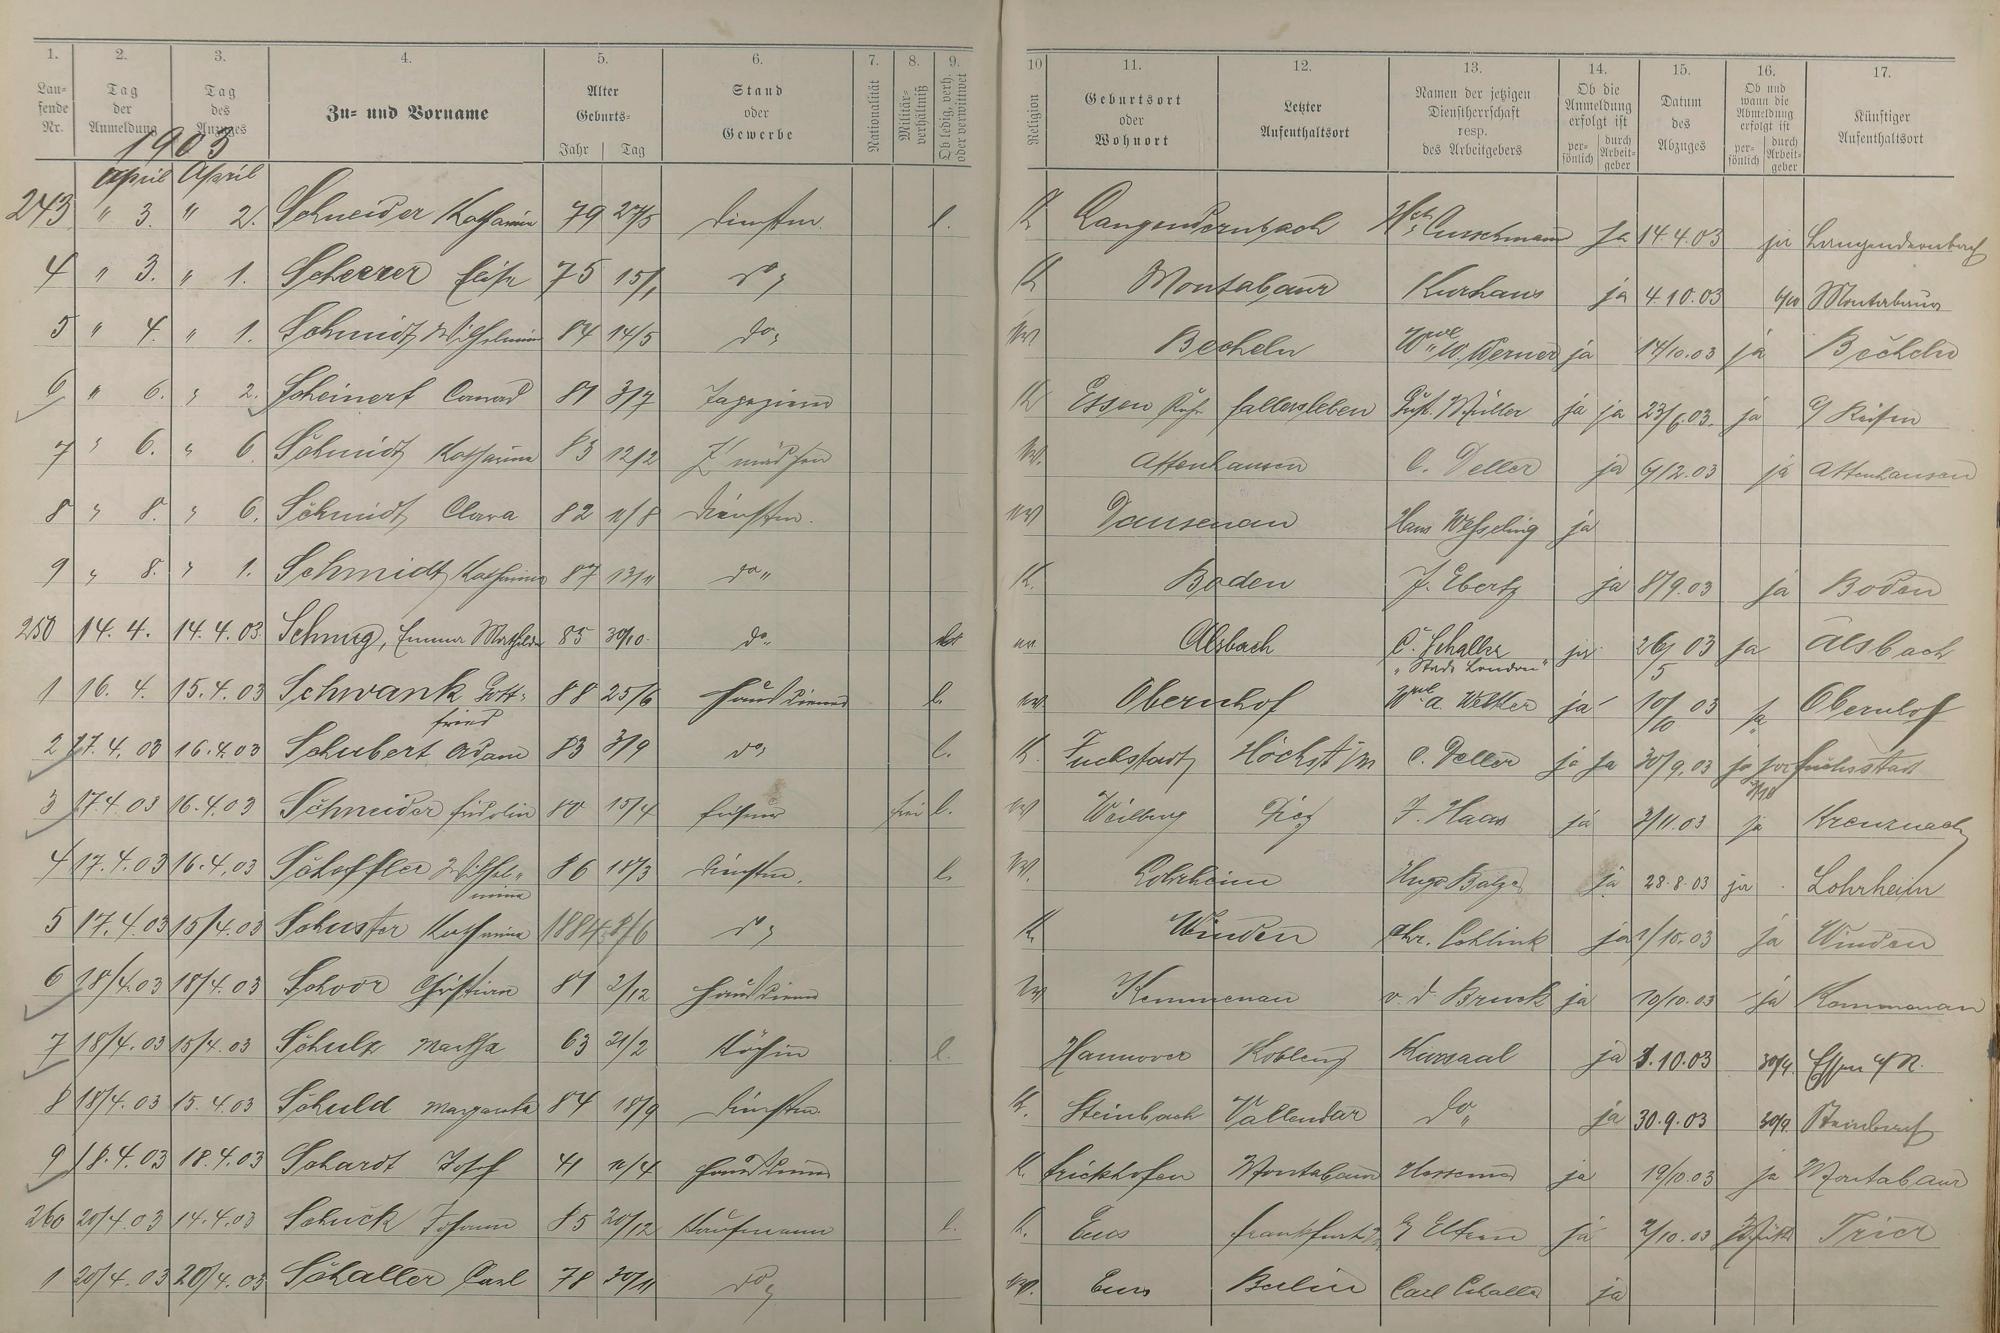 1. 2. 3. 4. 5. 6. 7. 8. 9. 10 11. 12. 13. 14. 15. 16. 17.
Laufende Nr. Tag der Anmeldung Tag des Anzuges Zu- und Vorname Alter Geburts- Jahr Tag Stand oder Gewerbe Nationalität Militärverhältniß Ob ledig, verh. oder verwittwet Religion Geburtsort oder Wohnort Letzter Aufenthaltsort Namen der jetzigen Dienstherrschaft resp. des Arbeitgebers Ob die Anmeldung erfolgt ist persönlich durch Arbeitgeber Datum des Abzuges Ob und wann die Abmeldung erfolgt ist persönlich durch Arbeitgeber Künftiger Aufenthaltsort
1903
April April
243 " 3. " 2. Schneider Katharina 79 27/5 Dienstm. l. K Langendernbach Ja 14.4.03 ja Langendernbach
4 " 3. " 1. Scherer Elise 75 15/1 do K Montabaur Kurhaus ja 4.10.03 Montabaur
5 " 4. " 1. Schmidt Wilhelmine 84 14/5 do Becheln Wwe W. Werner ja 14/10.03 ja Becheln
6 " 6. " 2. Scheinert Conrad 81 3/7 Tapezierer K Essen Ruhr Fallersleben Gust. Müller ja ja 23/6.03. ja
7 " 6. " 6. Schmidt Katharina 83 12/2 Z mädchen Attenhausen C. Deller ja 6/12.03 ja Attenhausen
8 " 8. " 6. Schmidt Clara 82 11/8 Dienstm. Dausenau Hans Wesseling ja
9 " 8. " 1. Schmidt Katharina 87 13/11 do " K. Boden J. Ebertz ja 8/9.03 ja Boden
250 14. 4. 14. 4. 03 Schmug, Emma Mathilde 85 30/10. do " Alsbach C. Schaller "Stadt London" ja 26/5 03 Ja Alsbach
1 16. 4. 15. 4. 03 Schwank Gottfried 88 25/6 Hausdiener l. Obernhof Wwe A. Welker ja 10/10 03 ja Obernhof
2 17. 4. 03 16. 4. 03 Schubert Adam 83 3/9 do l. K. Fuchsstadt Höchst a/M C. Deller ja Ja 30/9.03 ja Fuchsstadt
3 17.4.03 16.4.03 Schneider Fridolin 80 15/4 frei l. Weilburg Diez J. Haas ja 2/11.03 ja Kreuznach
4 17.4.03 16.4.03 Schöffler Wilhelmine 86 18/3 Dienstm. l. Lohrheim Hugo Balzer ja 28.8.03 ja Lohrheim
5 17.4.03 15/4.03 Schuster Katharina 1884 8/6 do K. Winden Chr. Schlink ja 1/10.03 ja Winden
6 18/4.03 18/4.03 Schoor Christian 81 2/12 Hausdiener Kemmenau v. d Bruck ja 10/10.03 ja Kemmenau
7 18/4.03 15/4.03 Schulz Martha 63 21/2 Köchin l. Hannover Koblenz Kursaal ja 1.10.03 30/9. Essen a/R.
8 18/4.03 15.4.03 Schuld Margareta 84 18/9 Dienstm. K. Steinbach Vallendar do " ja 30.9.03 30/9. Steinbach
9 18.4.03 18.4.03 Schardt Josef 41 11/4 Hausdiener K. Frickhofen Montabaur ja 19/10.03 ja Montabaur
260 20/4.03 14.4.03 Schuck Johann 85 20/12 Kaufmann l. K. Ems Frankfurt ja 2/10.03 Trier
1 20/4.03 20/4.03 Schaller Carl 78 30/11 do Ems Berlin Carl Schaller ja